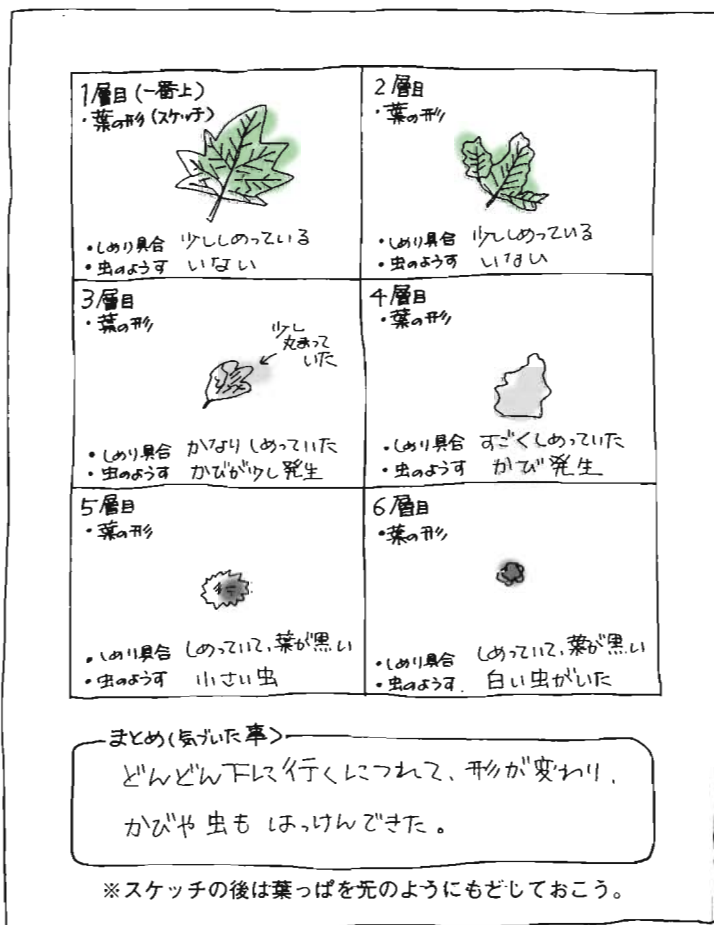 1層目(一番上)
・葉の形(スケッチ)
・しめり具合 少ししめっている
・虫のようす いない
2層目
・葉の形
・しめり具合 少ししめっている
・虫のようす いない
3層目
・葉の形
少し
丸まって
いた
・しめり具合 かなりしめっていた
・虫のようす かびが少し発生
4層目
・葉の形
・しめり具合 すごくしめっていた
・虫のようす かび発生
5層目
・葉の形
・しめり具合 しめっていて、葉が黒い
・虫のようす 小さい虫
6層目
・葉の形
・しめり具合 しめっていて、葉が黒い
・虫のようす 白い虫がいた
まとめ(気づいた事)
どんどん下に行くにつれて、形が変わり、
かびや虫もはっけんできた。
※スケッチの後は葉っぱを元のようにもどしておこう。